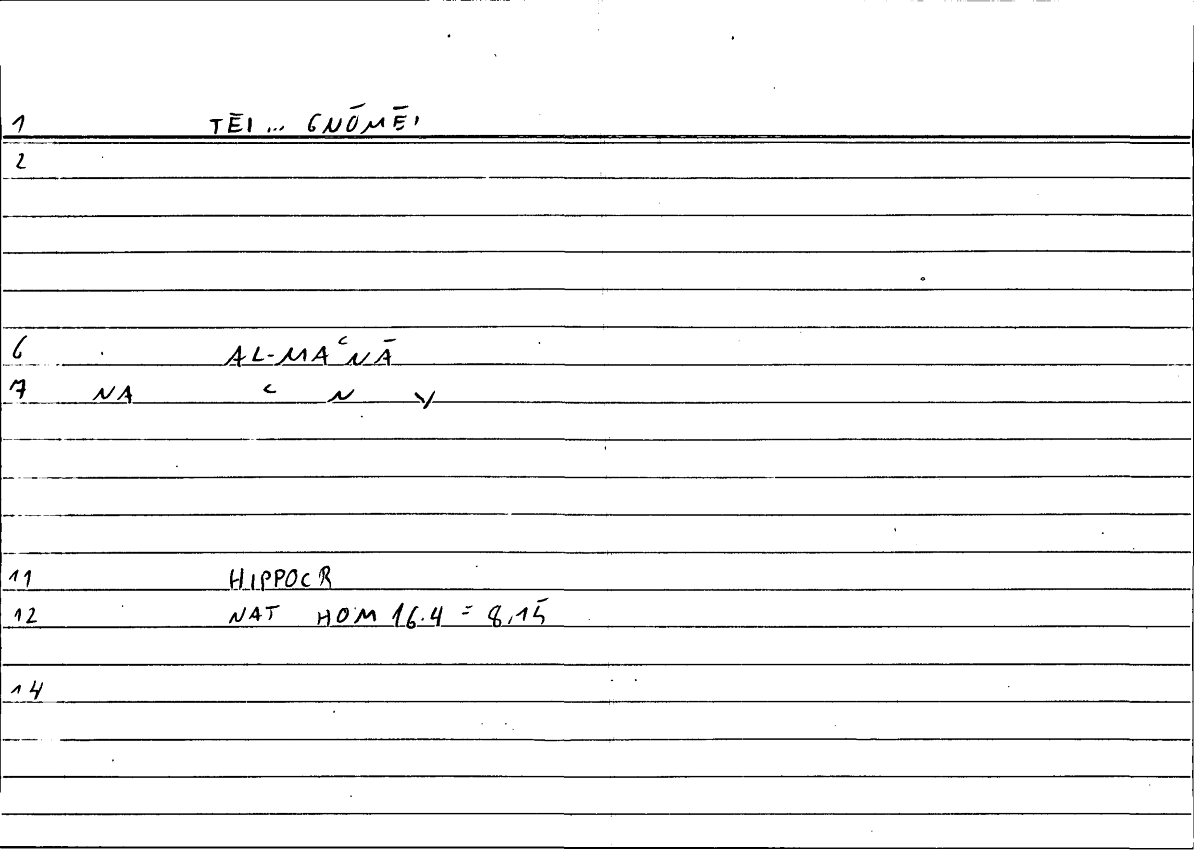 1 TĒI ... GNŌMĒI
2
6 AL-MAʿNĀ
7 NA ʿ N Y
11 HIPPOCR
12 NAT HOM 16.4 = 8,15
14